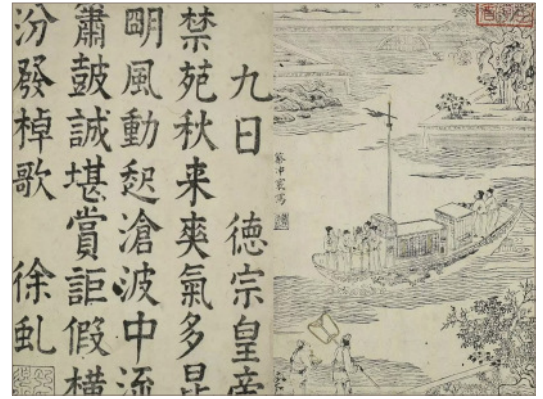 九日 德宗皇帝
禁苑秋来爽氣多昆
明風動起滄波中流
簫鼓誠堪賞詎假橫
汾發棹歌 徐虬
蔡冲寰寫